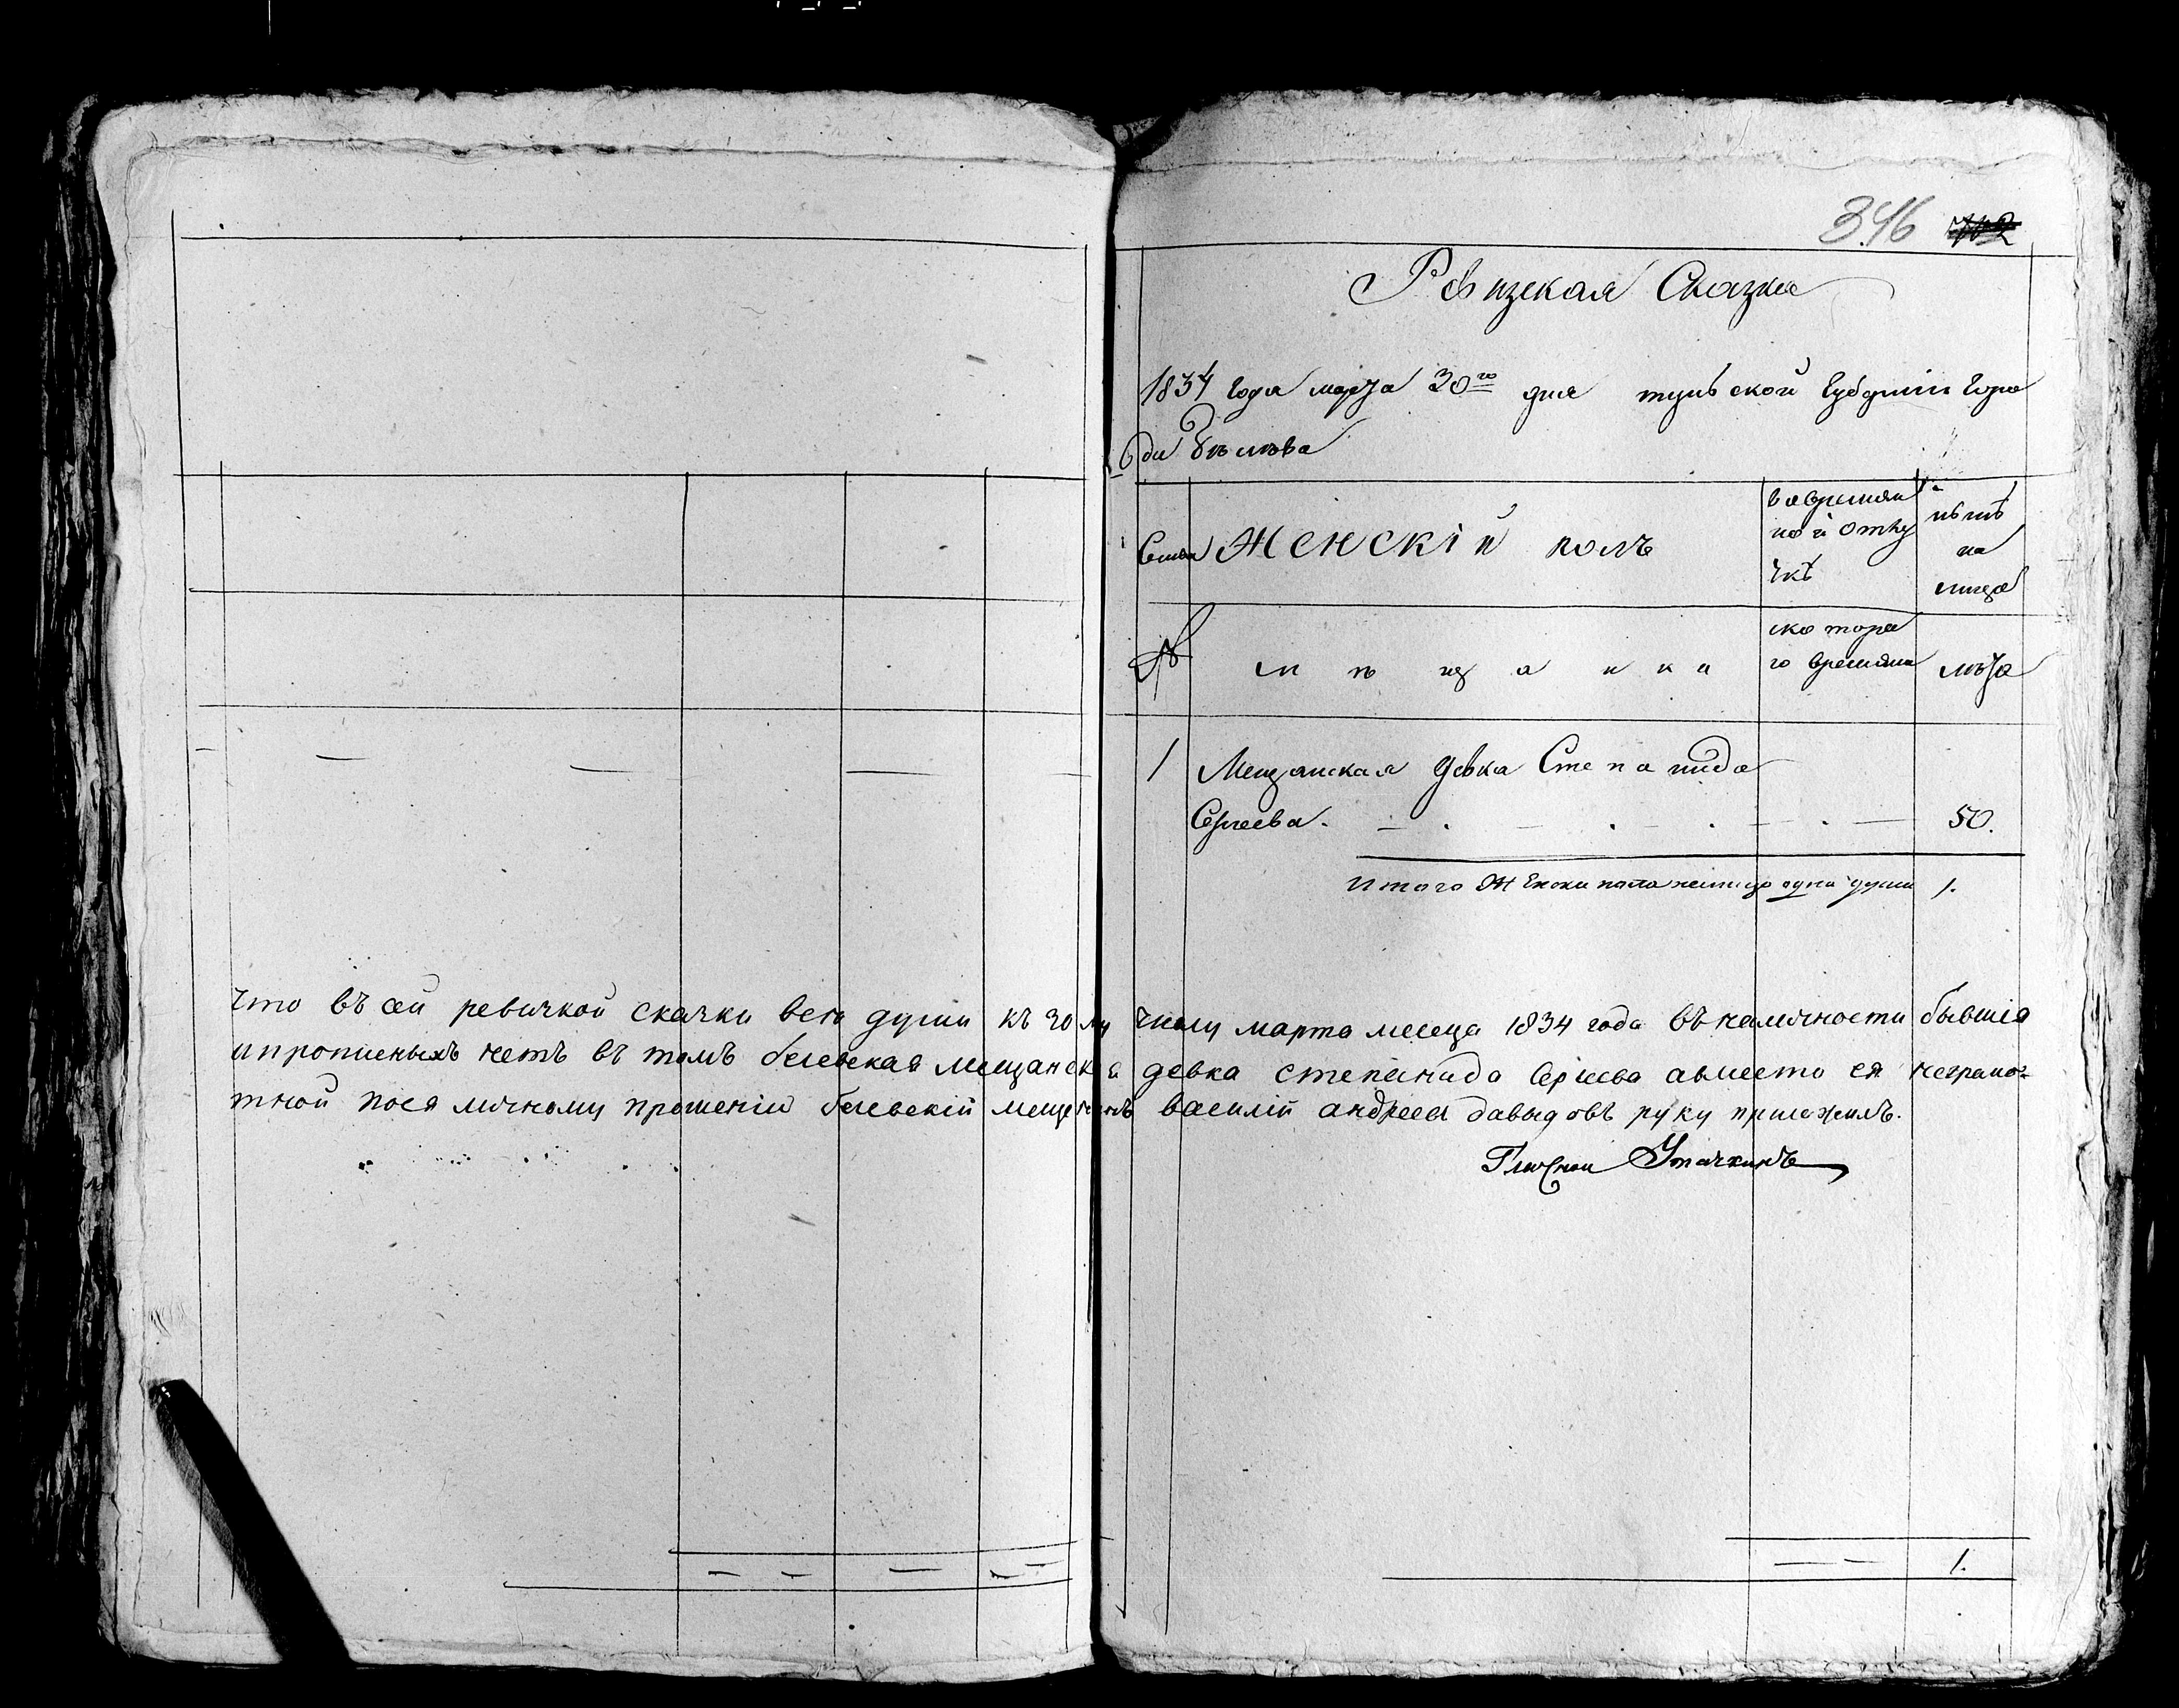 346 702
Ревизская Сказка
1834 Года марта 30го дня тульской Губернии Горо
да Бѣлѣва
Семьи Женскій полъ
вовремян
ной отлу
чкѣ
нынѣ
на
лицо
№ мѣщанки
скотора
го времяни
лѣта
1 Мещанская девка Степанида
Сергеева. 50.
Итого Женска пола налицо одна душа 1.
что въ сей ревичкой скачки всѣ души къ 30му числу марта месеца 1834 года въ наличности бывшіа
ипрописныхъ нетъ въ томъ белевская мещанская девка степанида Сергеева авместо ея неграмо=
тной поея личному прошенію белевскій мещенинъ василій андреев давыдовъ руку приложилъ.
Гласной Уточкинъ
1.